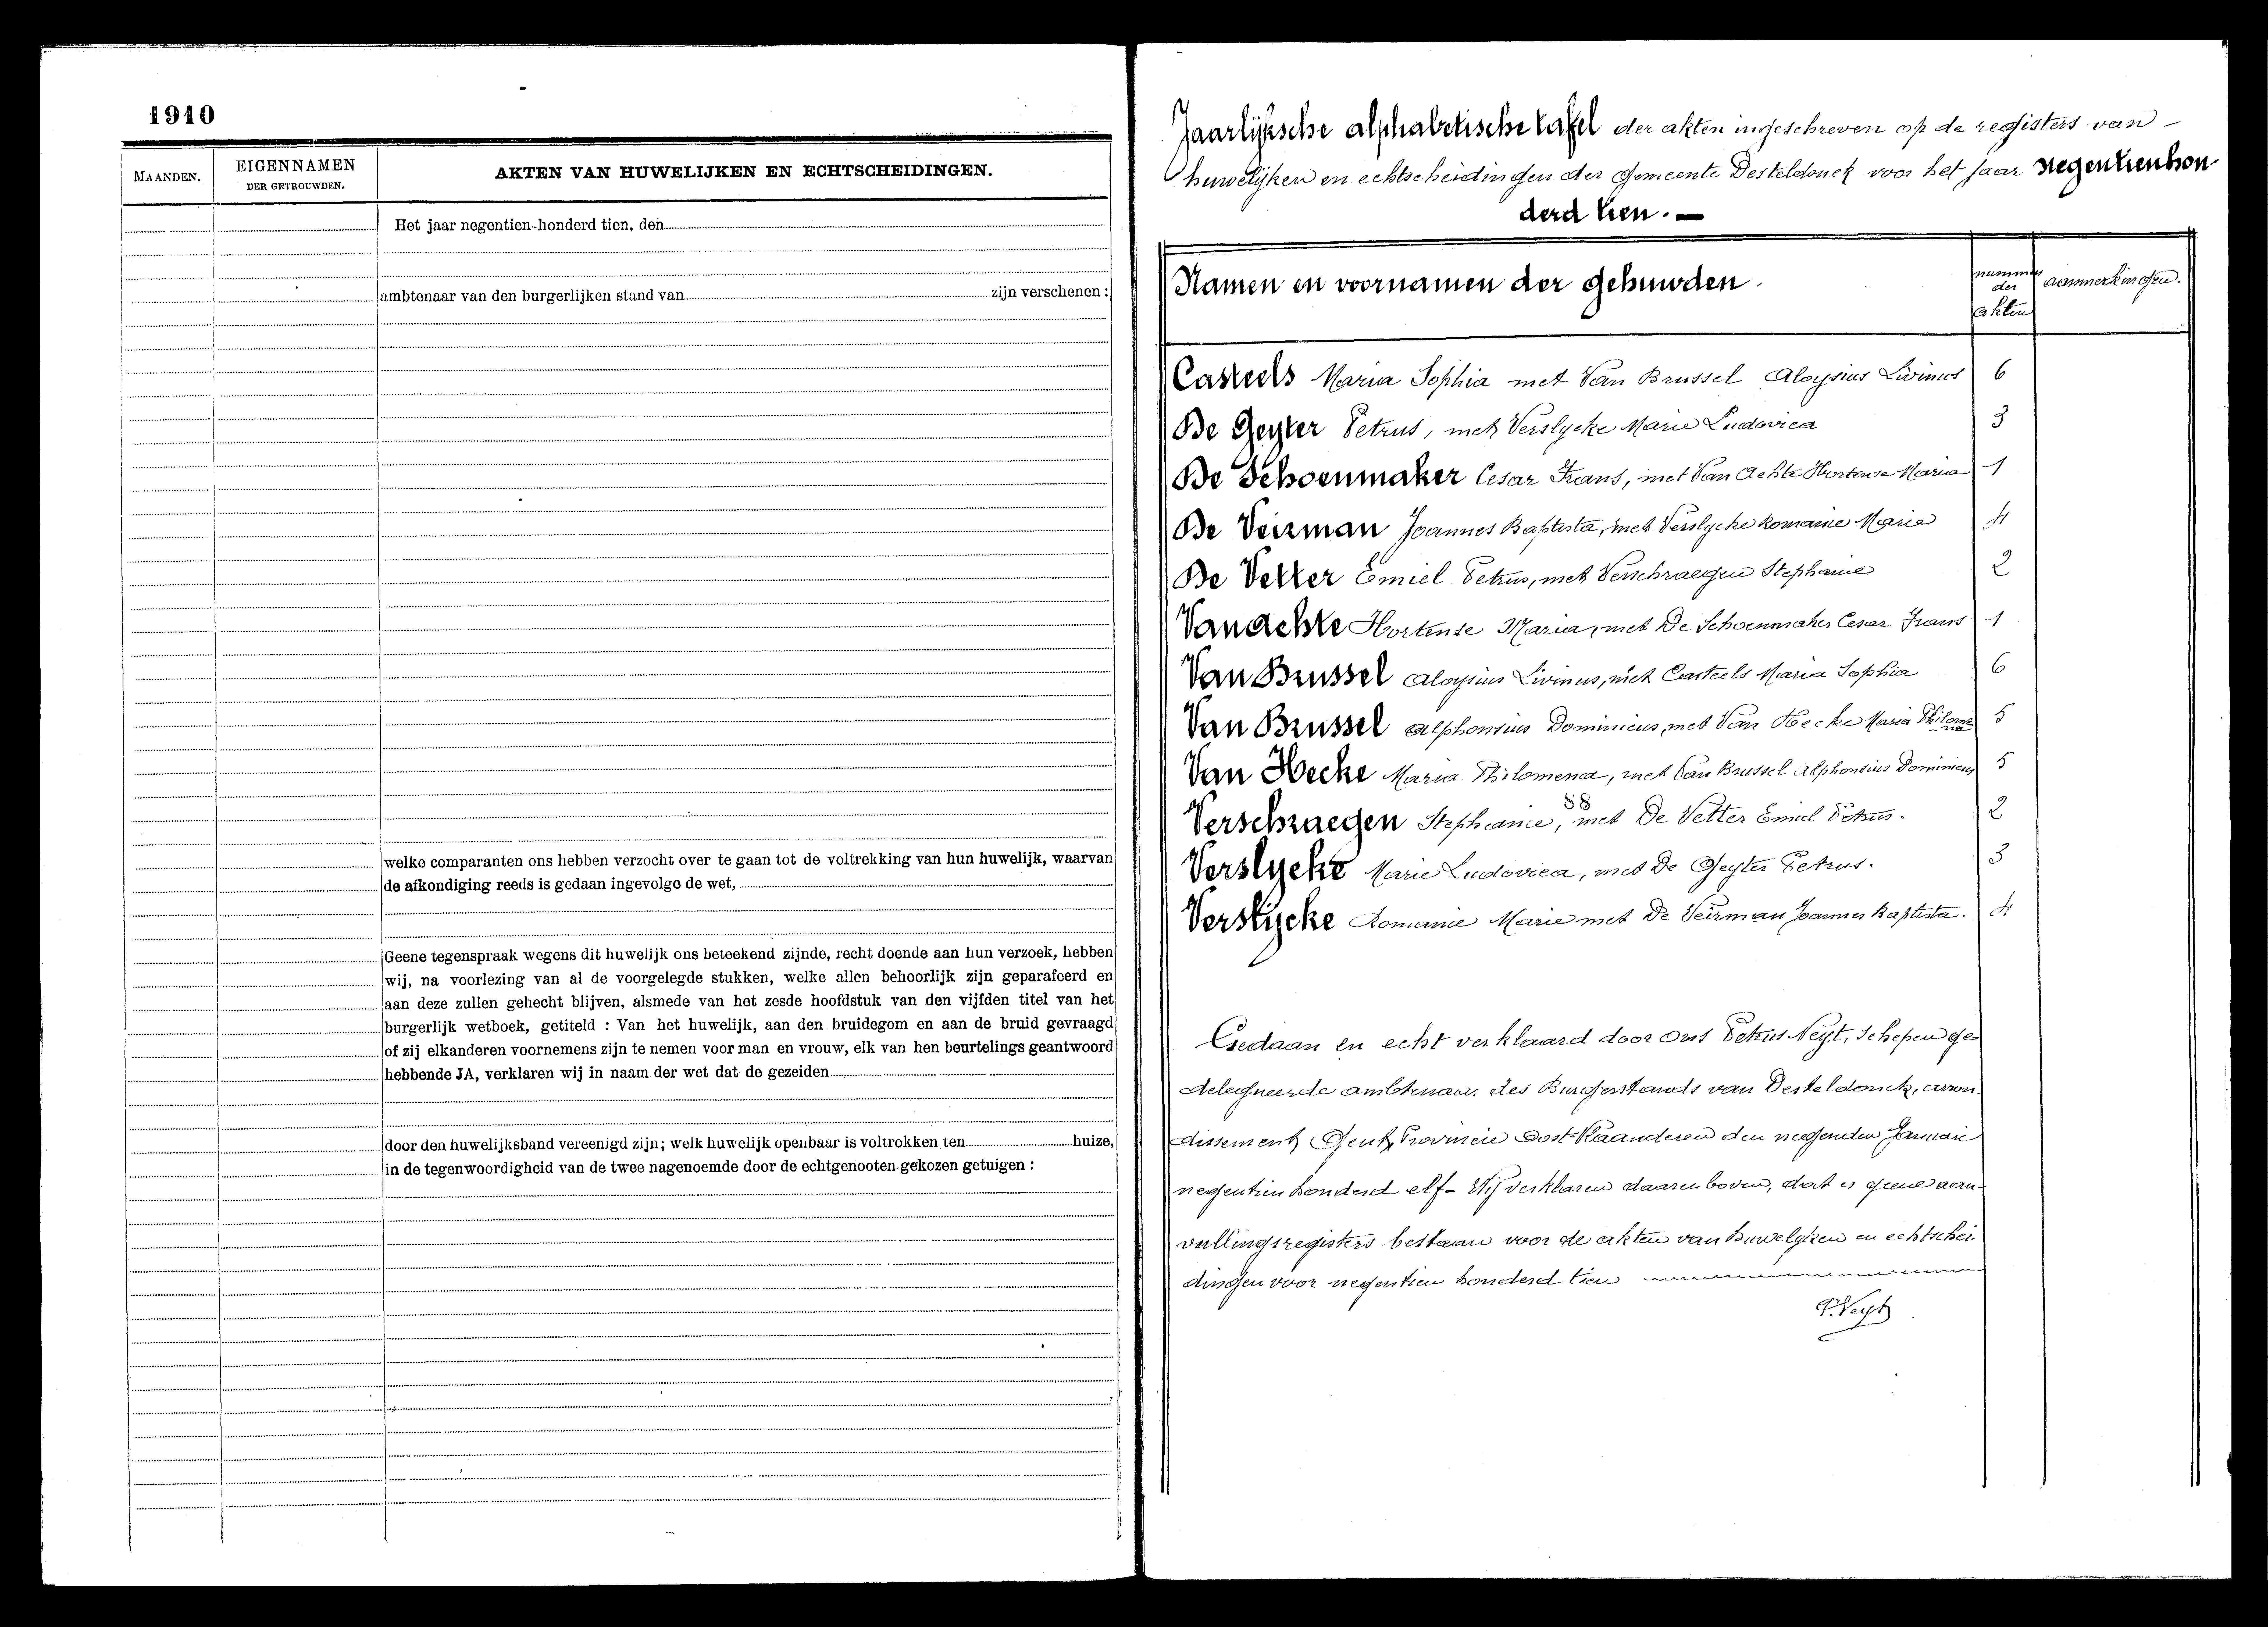 1910
MAANDEN.
EIGENNAMEN
DER GETROUWDEN.
AKTEN VAN HUWELIJKEN EN ECHTSCHEIDINGEN.
Het jaar negentien-honderd tien, den
ambtenaar van den burgerlijken stand van zijn verschenen :
welke comparanten ons hebben verzocht over te gaan tot de voltrekking van hun huwelijk, waarvan
de afkondiging reeds is gedaan ingevolge de wet,
Geene tegenspraak wegens dit huwelijk ons beteekend zijnde, recht doende aan hun verzoek, hebben
wij, na voorlezing van al de voorgelegde stukken, welke allen behoorlijk zijn geparafeerd en
aan deze zullen gehecht blijven, alsmede van het zesde hoofdstuk van den vijfden titel van het
burgerlijk wetboek, getiteld : Van het huwelijk, aan den bruidegom en aan de bruid gevraagd
of zij elkanderen voornemens zijn te nemen voor man en vrouw, elk van hen beurtelings geantwoord
hebbende JA, verklaren wij in naam der wet dat de gezeiden
door den huwelijksband vereenigd zijn; welk huwelijk openbaar is voltrokken ten huize,
in de tegenwoordigheid van de twee nagenoemde door de echtgenooten gekozen getuigen :
Jaarlijksche alphabetische tafel der akten ingeschreven op de registers van -
huwelijken en echtscheidingen der gemeente Desteldonck voor het jaar negentienhon-
derd tien. -
Namen en voornamen der gehuwden.
nummer
der
akten
aanmerkingen.
Casteels Maria Sophia met Van Brussel Aloysius Livinus 6
De Geyter Petrus, met Verslycke Marie Ludovica 3
De Schoenmaker Cesar Frans, met Van Achte Hortense Maria 1
De Veirman Joannes Baptista, met Verslycke Romanie Marie 4
De Vetter Emiel Petrus, met Verschraegen Stephanie 2
Van Achte Hortense Maria, met De Schoenmaker Cesar Frans 1
Van Brussel Aloysius Livinus, met Casteels Maria Sophia 6
Van Brussel Alphonsius Dominicus, met Van Hecke Maria Philome
na 5
Van Hecke Maria Philomena, met Van Brussel Alphonsius Dominicus 5
88
Verschraegen Stephanie, met De Vetter Emiel Petrus. 2
Verslycke Marie Ludovica, met De Geyter Petrus. 3
Verslycke Romanie Marie met De Veirman Joannes Baptista. 4
Gedaan en echt verklaard door Ons Petrus Neyt, schepen ge
delegueerde ambtenaar des Burgerstands van Desteldonck, arron
dissement Gent, Provincie Oost-Vlaanderen den negenden Januari
negentien honderd elf - Wij verklaren daarenboven, dat er geene aan-
vullingsregisters bestaan voor de akten van huwelyken en echtschei-
dingen voor negentien honderd tien
P. Neyt